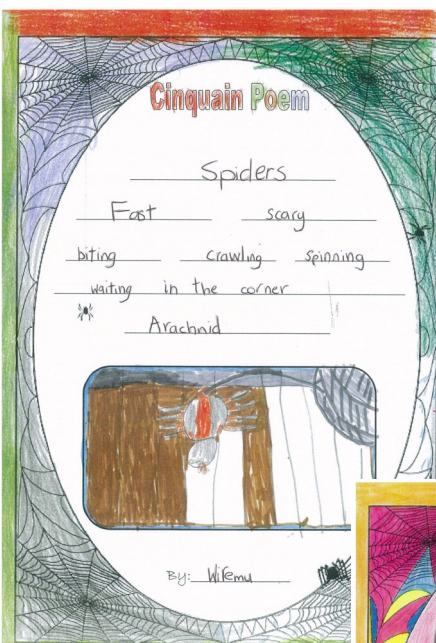 Cinquain Poem
Spiders
Fast scary
biting crawling spinning
waiting in the corner
Arachnid
By: Wiremu